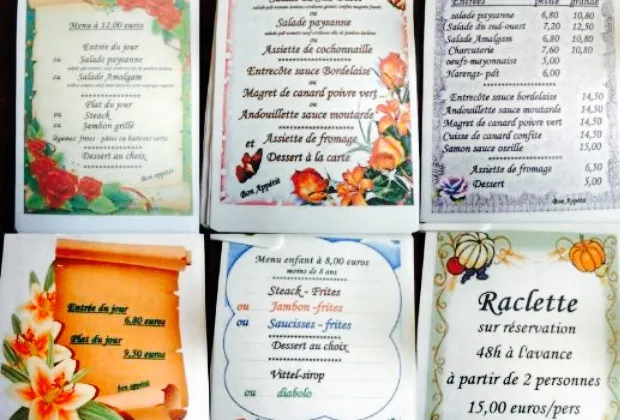 Menu à 12,00 euros
Entrée du jour
ou Salade paysanne
ou Salade Amalgam
Plat du jour
ou Steack
ou Jambon grillé
légumes: frites - pâtes ou haricots verts
Dessert au choix
Bon appétit
Salade paysanne
ou
Assiette de cochonnaille
Entrecôte sauce Bordelaise
ou
Magret de canard poivre vert
ou
Andouillette sauce moutarde
et Assiette de fromage
Dessert à la carte
Bon Appétit
Entrées petite grande
salade paysanne 6,80 10,80
Salade du sud-ouest 7,20 12,50
Salade Amalgam 6,80 10,80
Charcuterie 7,60 10,80
oeuf-mayonnaise 5,00
Harengs- pdt 6,00
Entrecôte sauce bordelaise 14,50
Andouillette sauce moutarde 14,50
Magret de canard poivre vert 14,50
Cuisse de canard confite 14,50
Samon sauce oseille 15,00
Assiette de fromage 6,50
Dessert 5,00
Bon Appétit
Entrée du jour
6,80 euros
Plat du jour
9,50 euros
bon appétit
Menu enfant à 8,00 euros
moins de 8 ans
Steack - Frites
ou Jambon -frites
ou Saucisses - frites
Dessert au choix
Vittel-sirop
ou diabolo
Raclette
sur réservation
48h à l'avance
à partir de 2 personnes
15,00 euros/pers